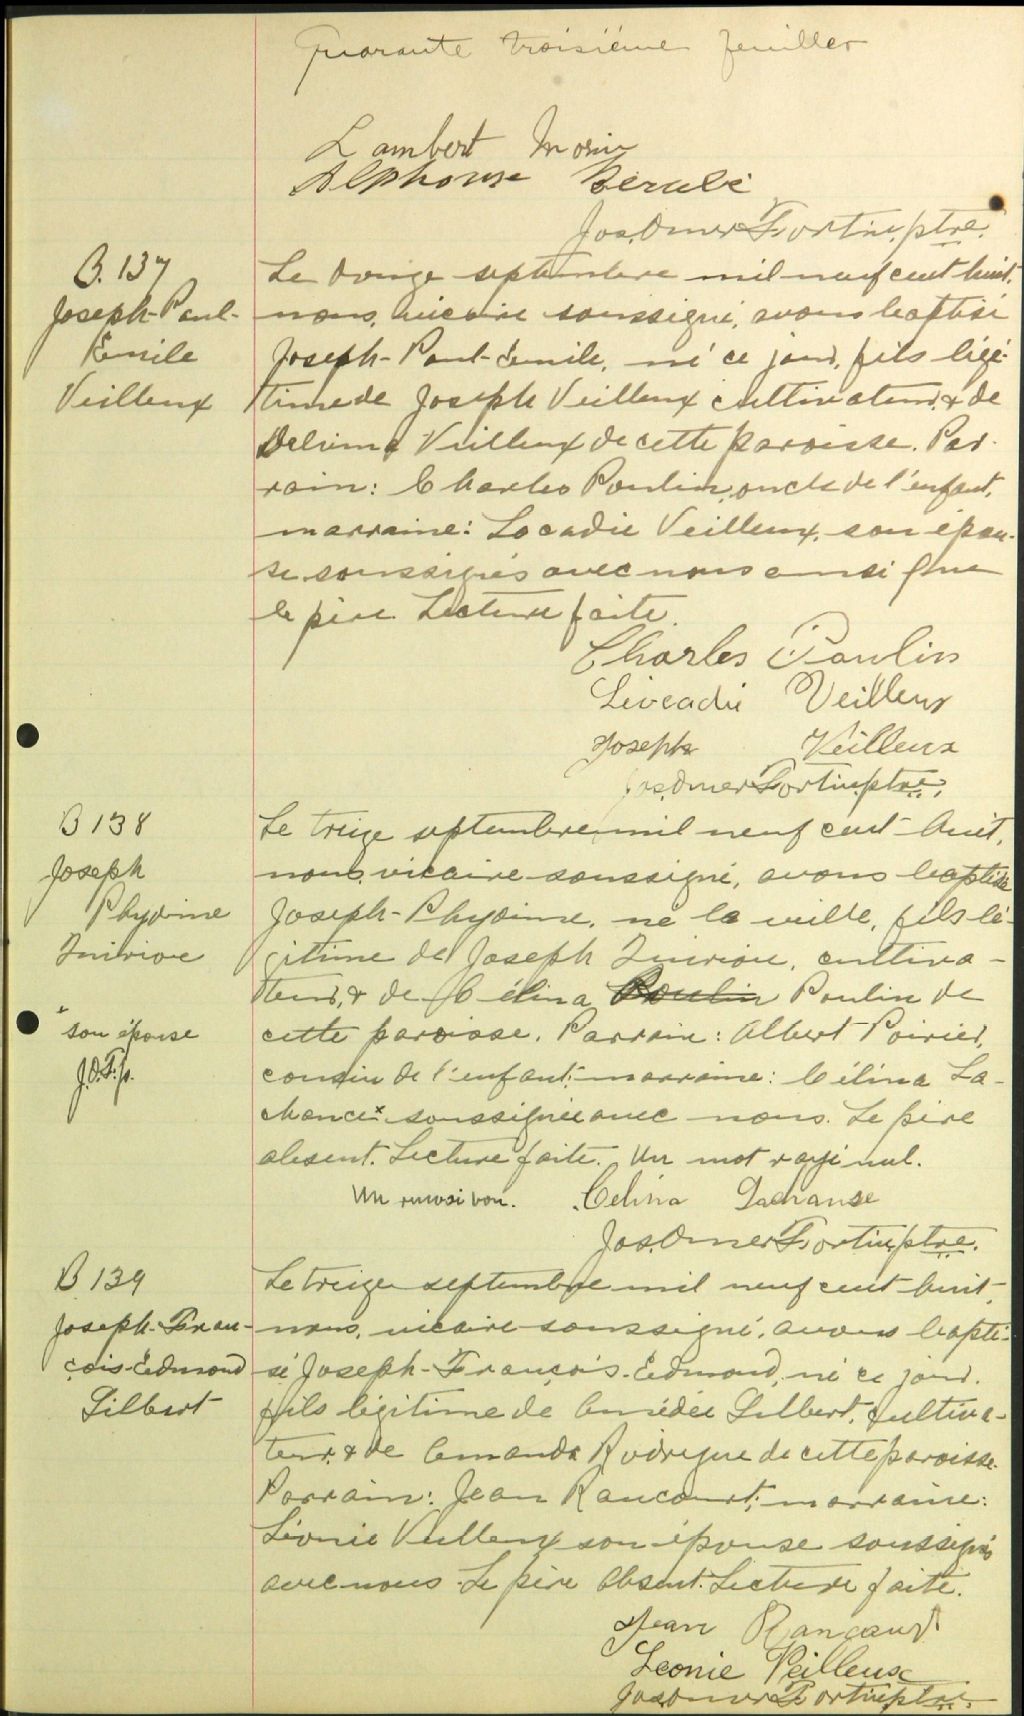 Quarante troisième feuillet
Lambert Morin
Alphonse Bérubé
Jos. Omer Fortin, ptre.
B. 137
Joseph-Paul-
Émile
Veilleux
Le douze septembre mil neuf cent huit,
nous, vicaire soussigné, avons baptisé
Joseph-Paul-Émile, né ce jour, fils légi-
time de Joseph Veilleux cultivateur, & de
Delvina Veilleux de cette paroisse. Par-
rain: Charles Poulin, oncle de l'enfant,
marraine: Locadie Veilleux, son épou-
se soussignés avec nous ainsi que
le père Lecture faite.
Charles Poulin
Léocadie Veilleux
Joseph Veilleux
Jos. Omer Fortin, ptre.
B 138
Joseph
Phydime
Quirion
x son épouse
J.O.F. p.
Le treize septembre mil neuf cent huit,
nous, vicaire soussigné, avons baptisé
Joseph-Phydime, né la veille, fils lé-
gitime de Joseph Quirion, cultiva-
teur, & de Célina Poulin Poulin de
cette paroisse. Parrain: Albert Poirier,
cousin de l'enfant; marraine: Célina La-
chance x soussignée avec nous. Le père
absent. Lecture faite. Un mot rayé nul.
Un renvoi bon. Celina Lachanse
Jos. Omer Fortin, ptre.
B 139
Joseph-Fran-
çois-Edmond
Gilbert
Le treize septembre mil neuf cent huit,
nous, vicaire soussigné, avons bapti-
sé Joseph-François-Edmond, né ce jour,
fils légitime de Amédée Gilbert, cultiva-
teur, & de Amanda Rodrigue de cette paroisse.
Parrain: Jean Rancourt; marraine:
Léonie Veilleux son épouse soussignés
avec nous. Le père absent. Lecture faite.
Jean Rancourt
Leonie Veilleux
Jos. Omer Fortin, ptre.